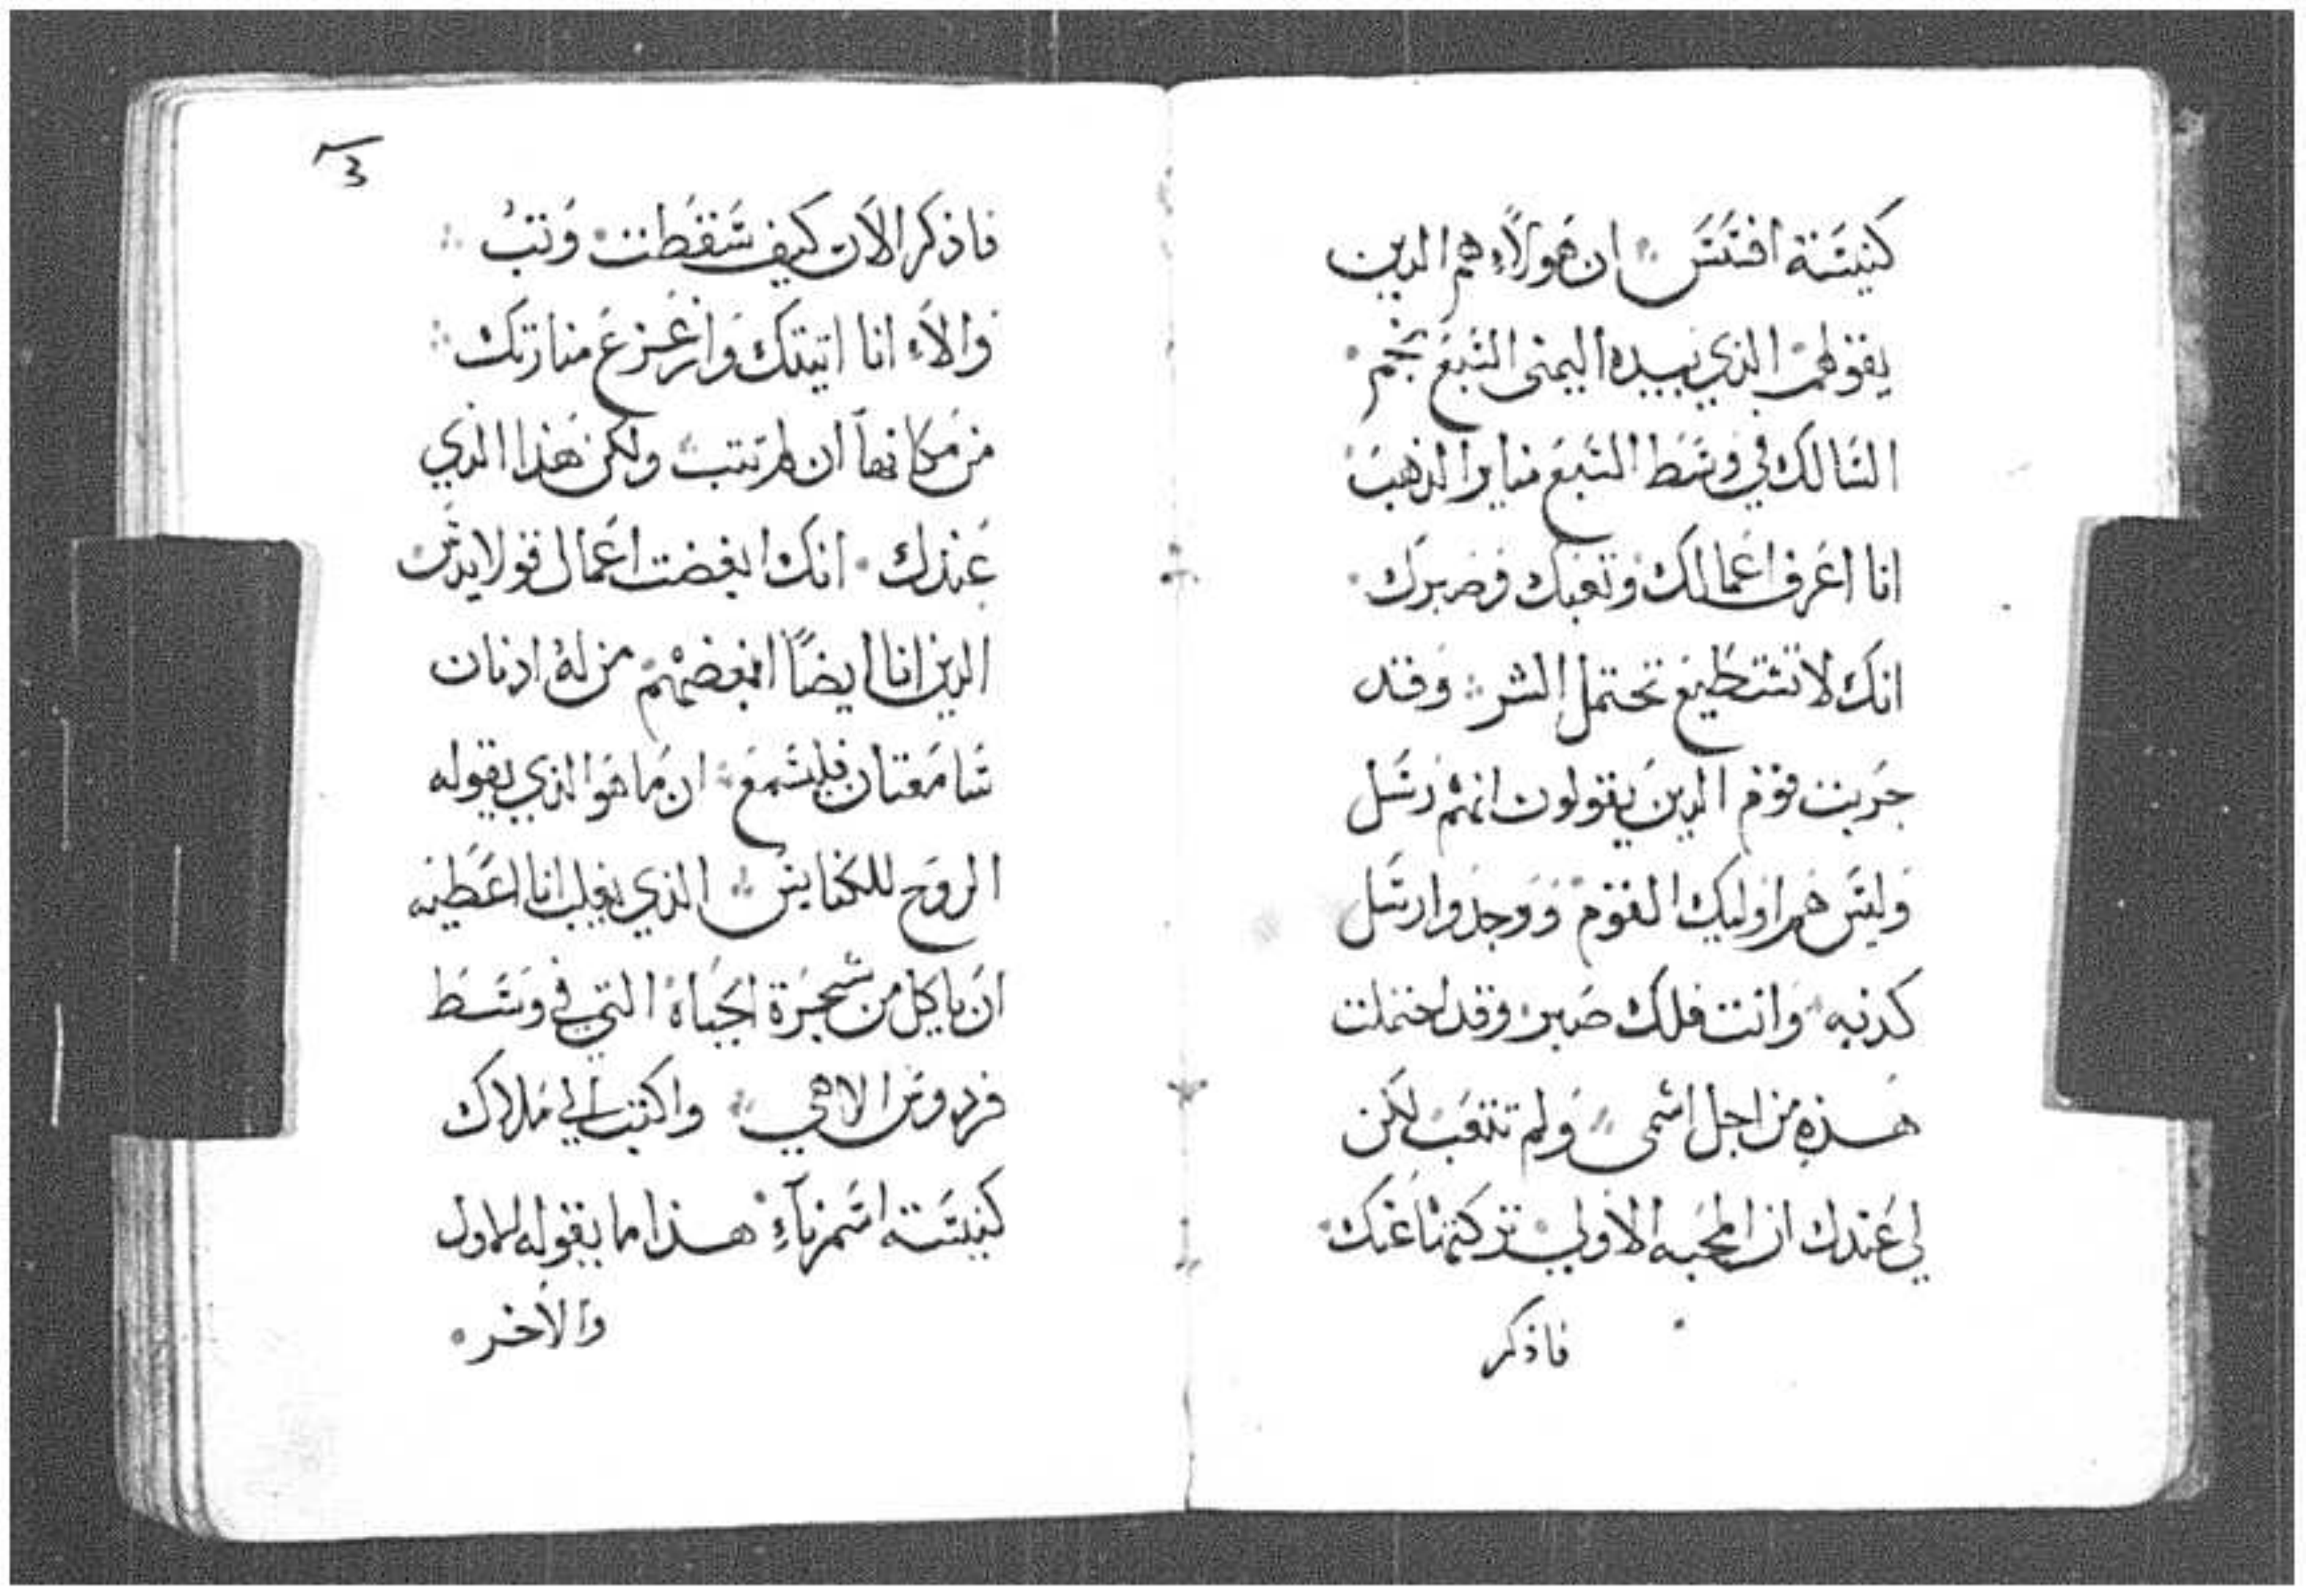 كنيسة افسس ان هولاء هم الدين
يقولهم الذي بيده اليمنى السبع نجم
السالك في وسط السبع مناير الذهب
انا اعرف اعمالك وتعبك وصبرك
انك لا تستطيع تحتمل الشر وقد
جربت قوم الدين يقولون انهم رسل
وليس هم اوليك القوم ووجدوا رسل
كدبه وانت فلك صبر وقد احتملت
هذه من اجل اسمى ولم تتعب لكن
لي عندك ان المحبه الاولى تركتها عنك
فاذكر
3
فاذكر الان كيف سقطت وتب
والاء انا اتيتك وازعزع منارتك
من مكانها ان لم تتب ولكن هذا الذي
عندك انك ابغضت اعمال قولايدس
الدين انا ايضًا ابغضهم من له ادنان
سامعتان فليسمع ان ما هو الذي يقوله
الروح للكنايس الذي يغلب انا اعطيه
ان ياكل من شجرة الحياة التي في وسط
فردوس الاهي واكتب الي ملاك
كنيسة اسمرناء هذا ما يقوله الاول
والاخر